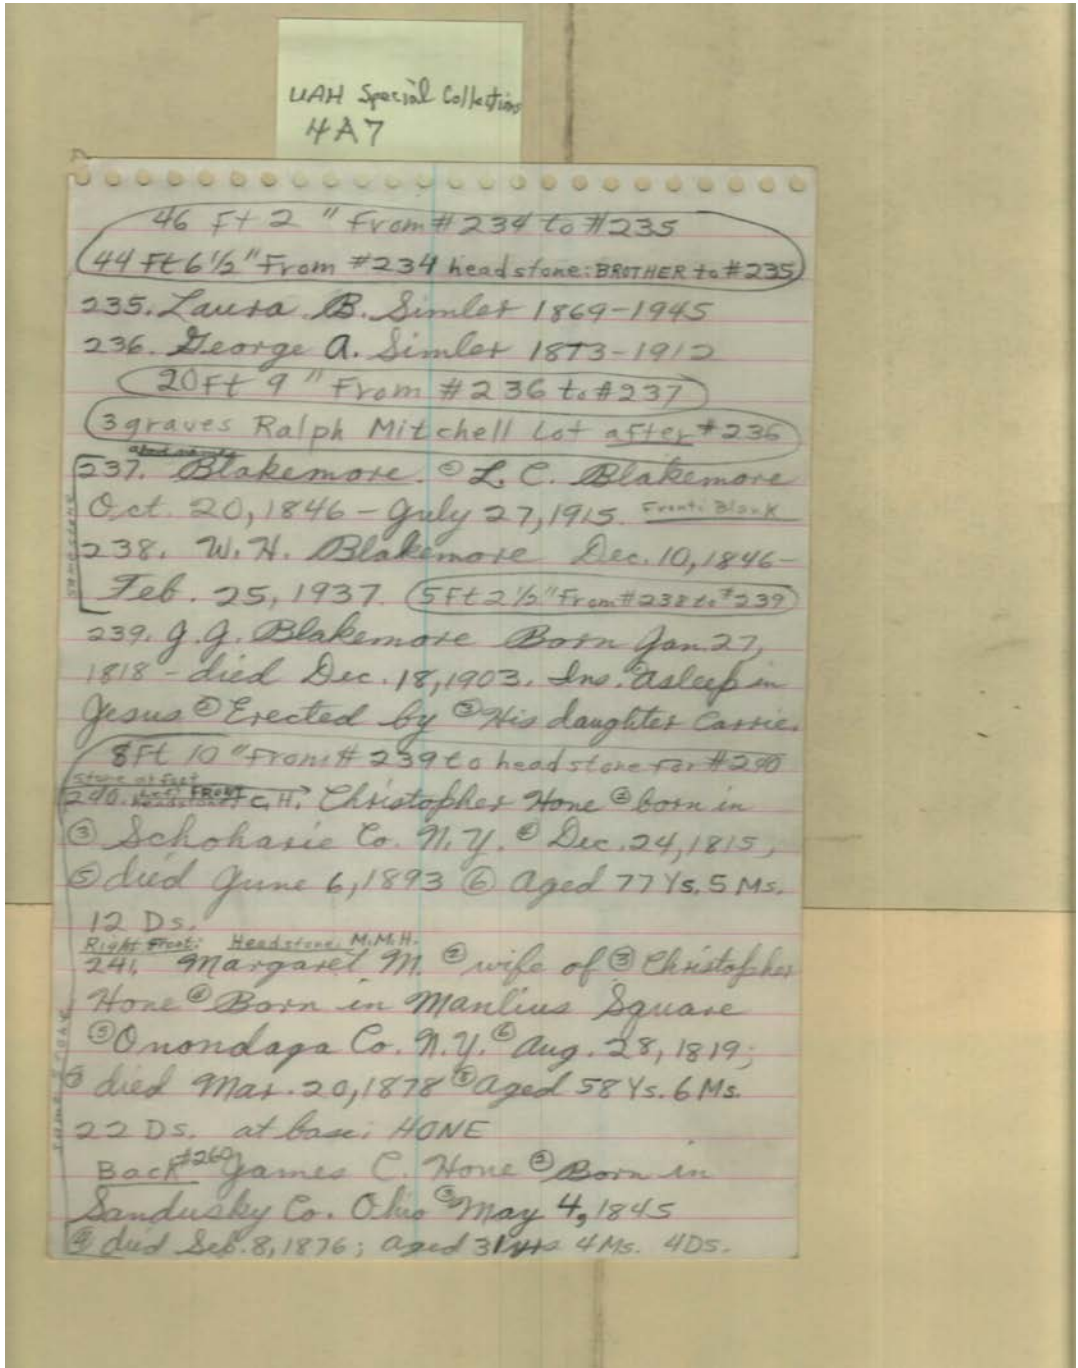 UAH Special Collections
4A7
46 Ft 2 " From #234 to #235
44 Ft 6 1/2" From #234 headstone: BROTHER to #235
235. Laura B. Simler 1869-1945
236. George A. Simler 1873-1912
20 Ft 9 " From #236 to #237
3 graves Ralph Mitchell Lot after #236
237. Blakemore. ② L. C. Blakemore
Oct. 20, 1846 - July 27, 1915. Front: Blank
238. W. H. Blakemore Dec. 10, 1846-
Feb. 25, 1937. 5 Ft 2 1/2" From #238 to #239
same stone
239. J. G. Blakemore Born Jan. 27,
1818 - died Dec. 18, 1903. Ins. Asleep in
Jesus ② Erected by ③ His daughter Carrie.
8 Ft 10 " From # 239 to headstone for #240
Stone at feet
240. Left FRONT Headstone C. H. Christopher Hone ② born in
③ Schoharie Co. N.Y. ④ Dec. 24, 1815,
⑤ died June 6, 1893 ⑥ Aged 77 Ys. 5 Ms.
12 Ds.
Right Front: Headstone: M.M.H.
241. Margaret M. ② wife of ③ Christopher
Hone ④ Born in Manlius Square
⑤ Onondaga Co. N.Y. ⑥ Aug. 28, 1819;
died Mar. 20, 1878 ⑧ Aged 58 Ys. 6 Ms.
22 Ds. at base: HONE
same stone
Back #260 James C. Hone ② Born in
Sandusky Co. Ohio ③ May 4, 1845
④ died Sep. 8, 1876; aged 31 yrs 4 Ms. 4 DS.